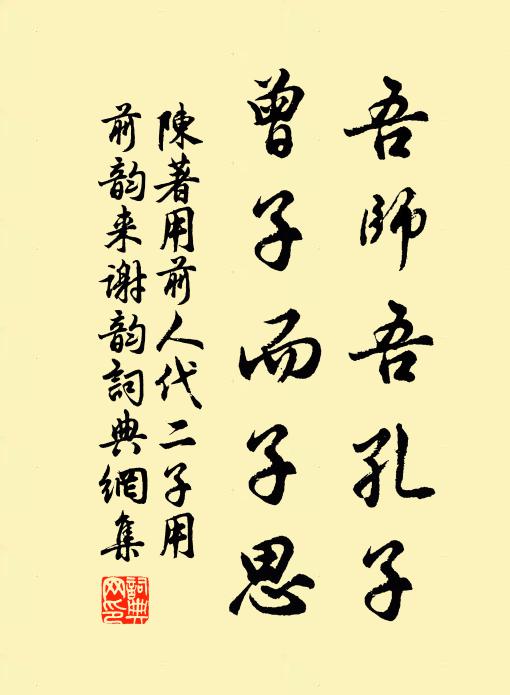 吾師吾孔子
曾子而子思
陳著用前人代二子用
前韵来謝韵詞典網集
詞典网印